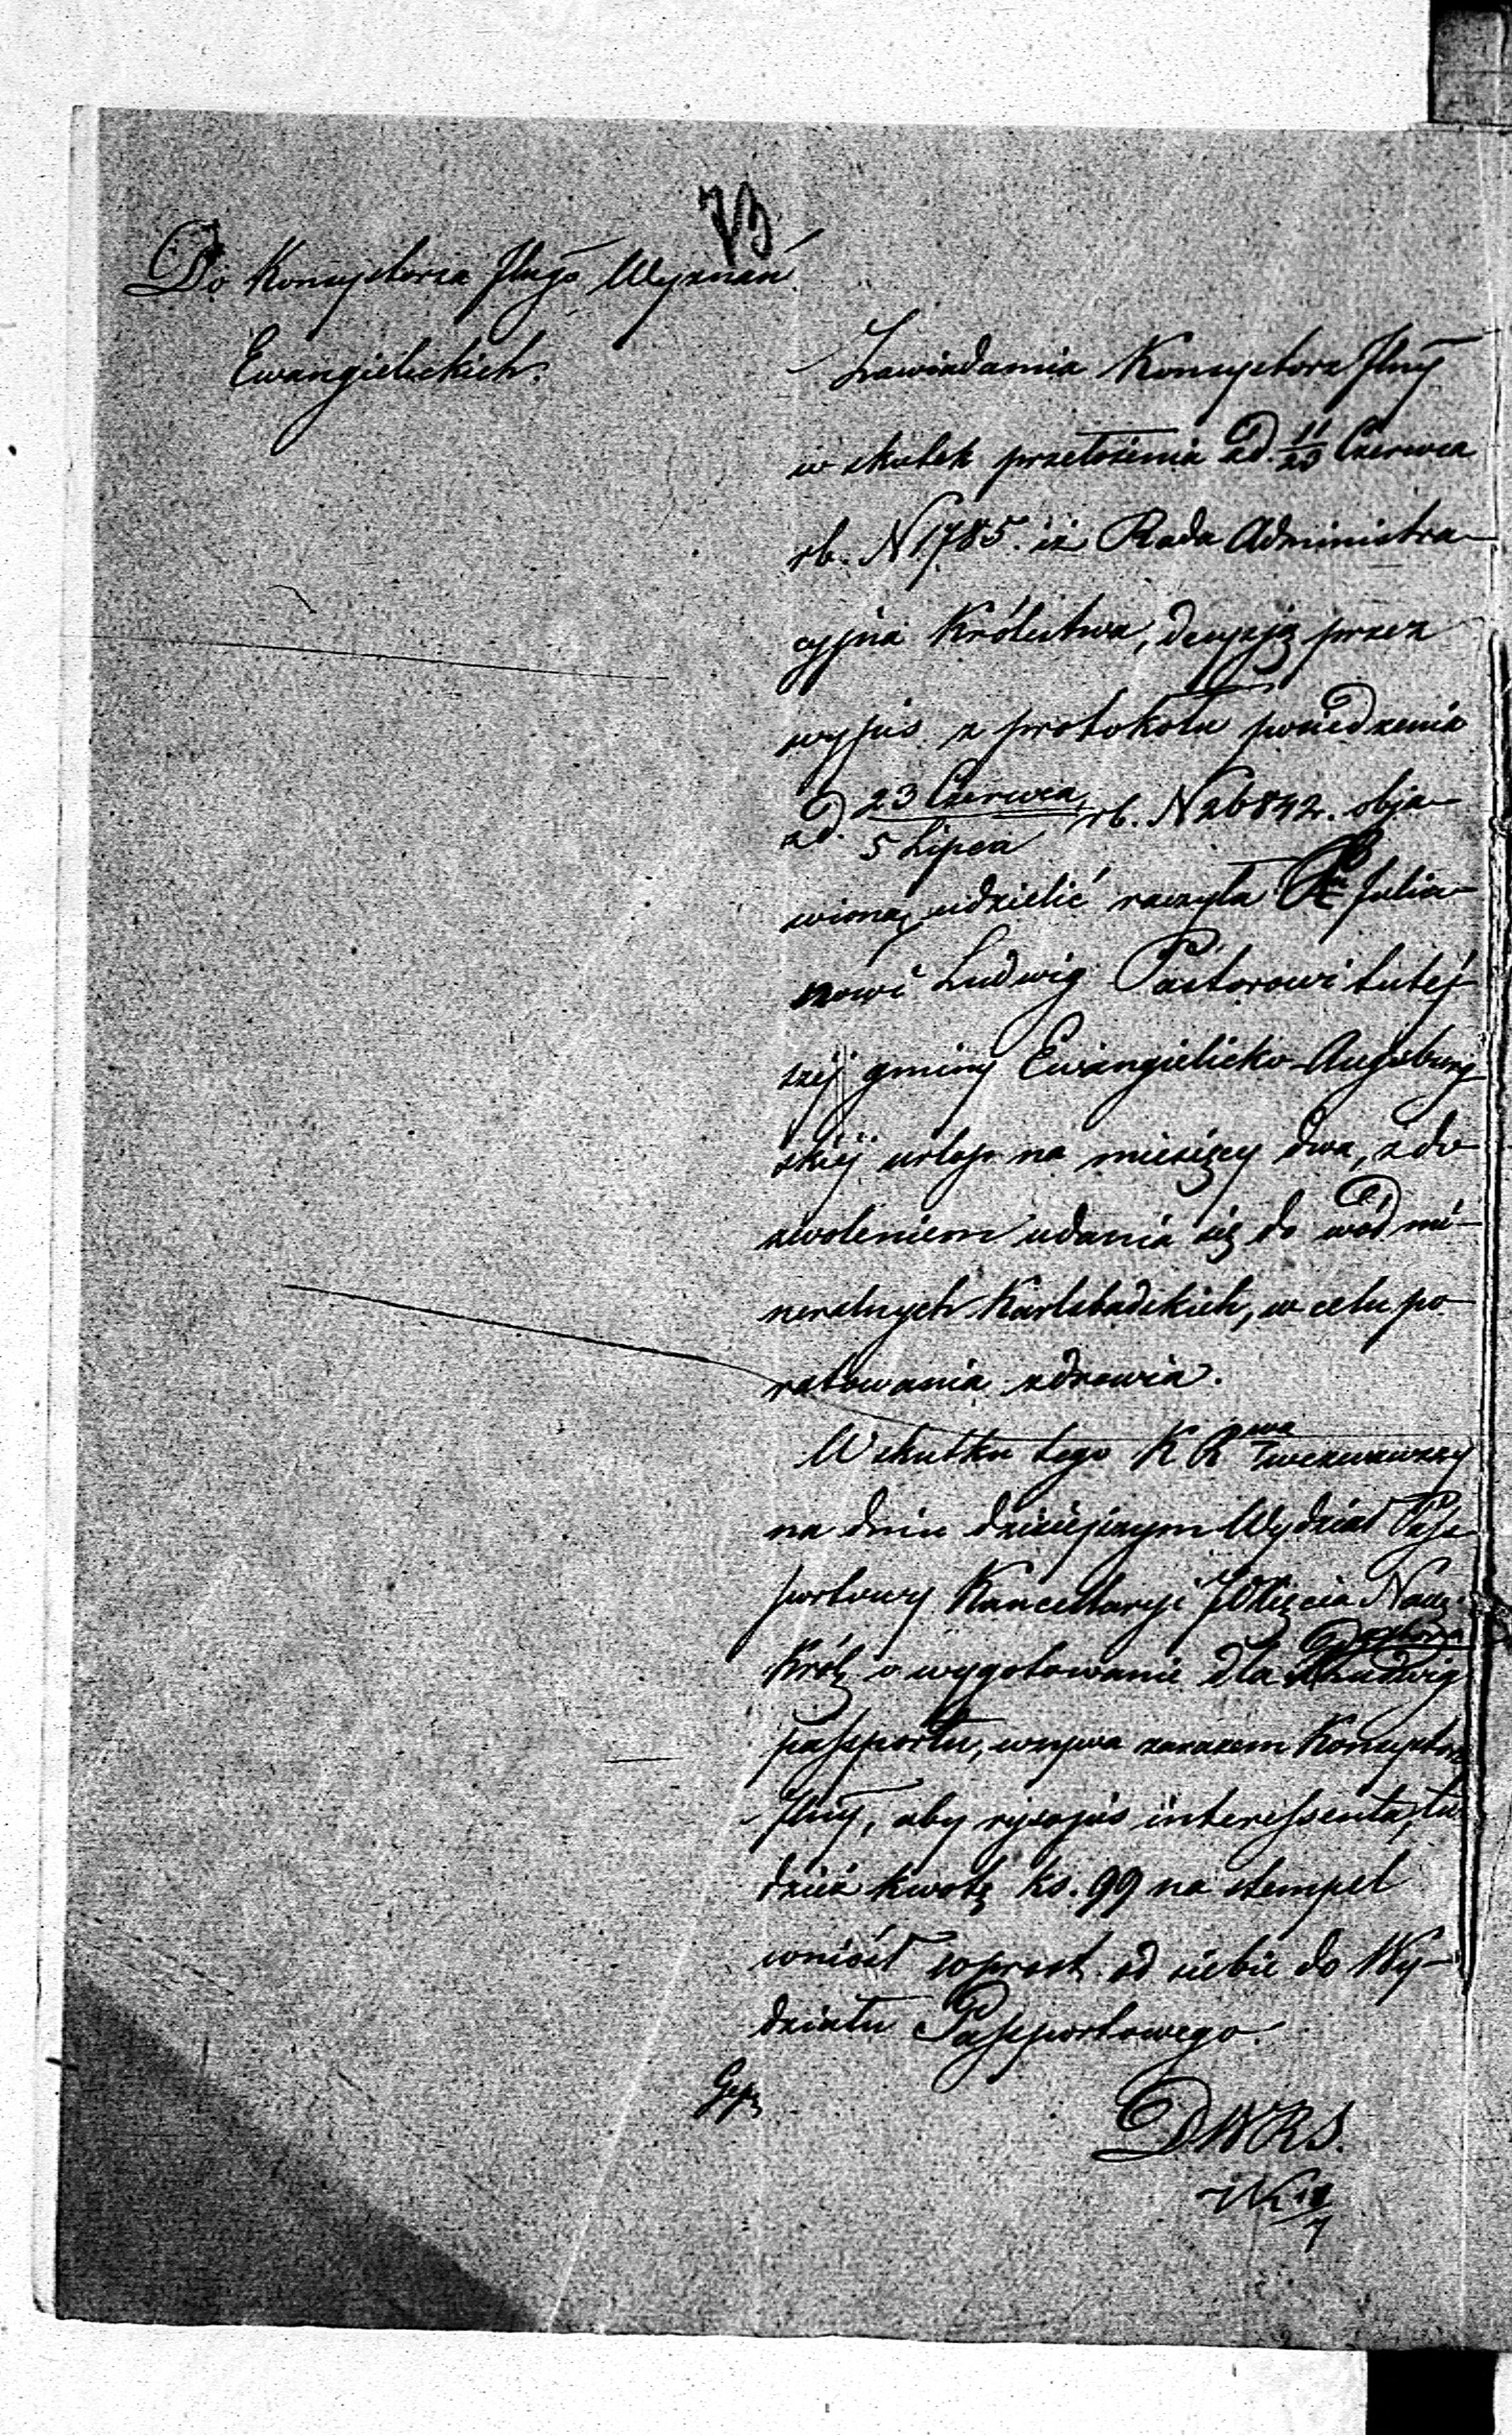 73
Do Konsystorza Jlngo Wyznań
Ewangielickich.
Zawiadamia Konsystorz Jlny
w skutek przełożenia z d. 11/23 Czerwca
rb. N 1785. iż Rada Administra-
cyjna Królestwa, decyzją przez
wypis z protokołu posiedzenia
z d. 23 Czerwca/5 Lipca rb. N 26842. obja-
wioną, udzielić raczyła Julia-
nowi Ludwig Pastorowi tutéj-
széj gminy Ewangielicko-Augsburg-
skiéj urlop na miesięcy dwa, z do-
zwoleniem udania się do wód mi-
neralnych Karlsbadzkich, w celu po-
ratowania zdrowia.
W skutku tego K R wezwawszy
na dniu dzisiejszym Wydział Pass-
portowy Kancellaryi JOXięcia Nam.
Król. o wygotowanie dla Pastora Ludwig
passportu, wzywa zarazem Konsystorz
Jlny, aby rysopis interessenta, tu-
dzież kwotę rs. 99 na stempel
wniósł wprost od siebie do Wy-
działu Passportowego.
DWRS.